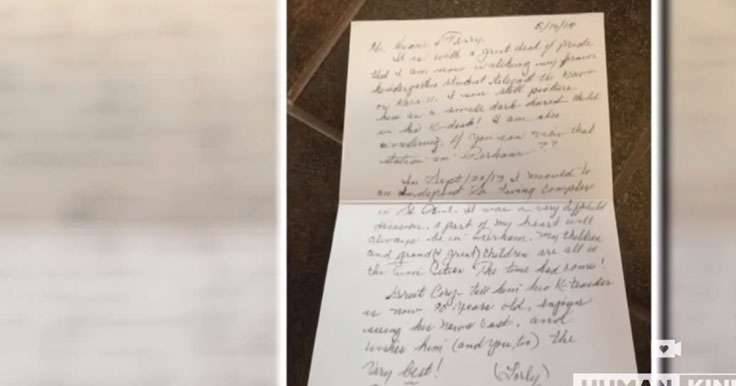 5/14/18
& Terry,
It is with a great deal of pride
that I am now watching my former
kindergarten student telecast the news
on Kare 11. I can still picture
him as a small dark haired child
in his K-desk! I am also
wondering if you can view that
station in Perham??
In Sept/2017 I moved to
an Independent Sr. living complex
in St Paul. It was a very difficult
decision. A part of my heart will
always be in Perham. My children
and grand (& great) children are all in
the Twin Cities. The time had come!
Greet Cory- tell him his K-teacher
is now years old, enjoys
seeing his news cast, and
wishes him (and you, too) the
very best!
HUMAN KIN